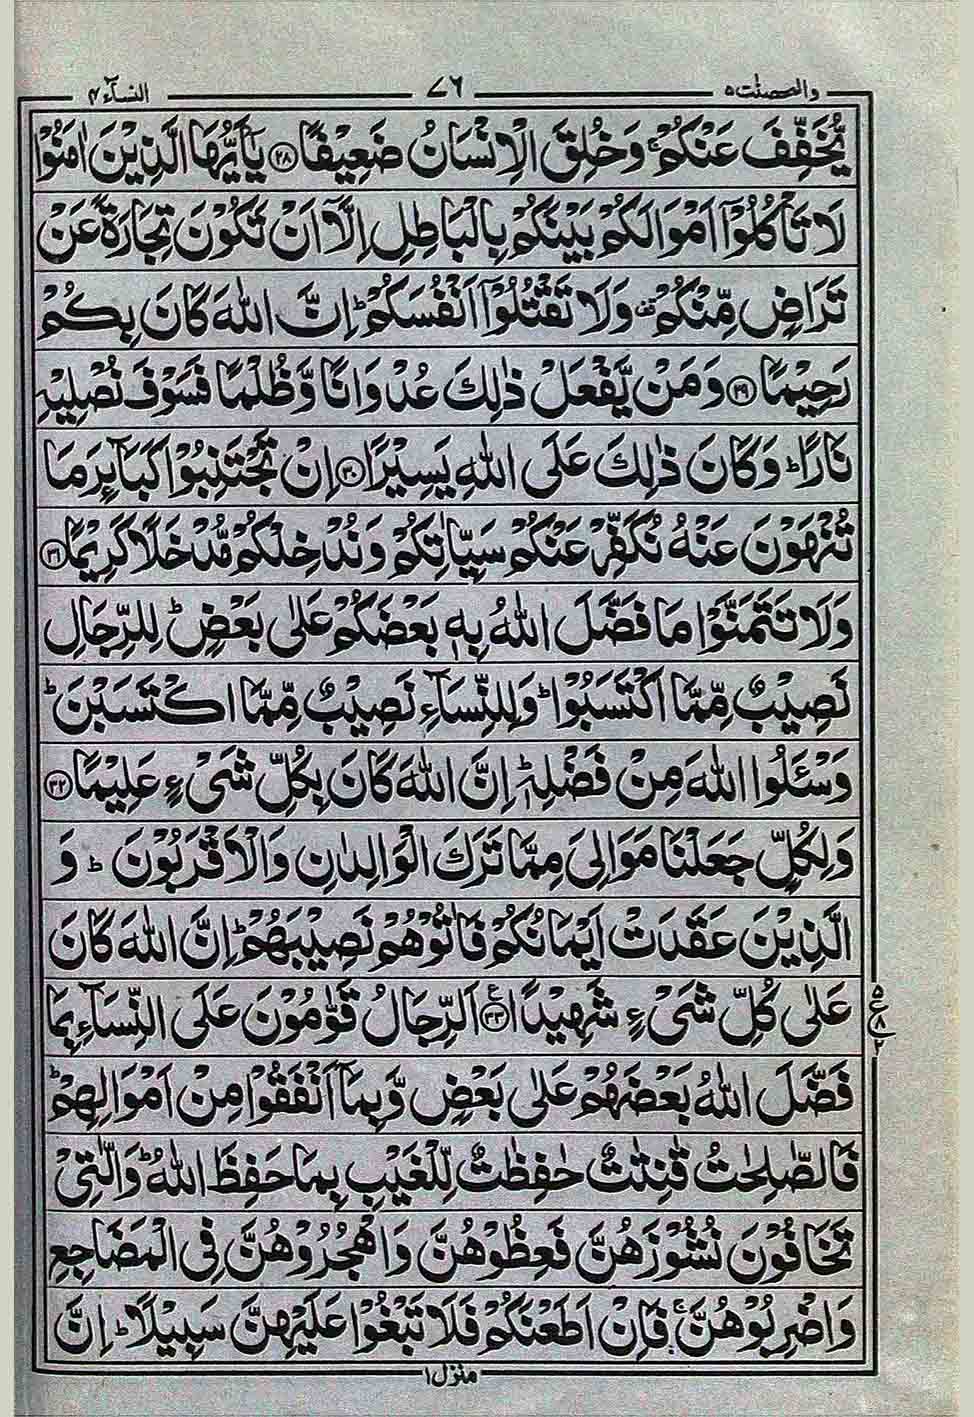 والمحصنٰت ۵ ۷۶ النسآء ۴
یُّخَفِّفَ عَنْكُمْ ۚ وَخُلِقَ الْاِنْسَانُ ضَعِیْفًا ﴿۲۸﴾ یٰۤاَیُّهَا الَّذِیْنَ اٰمَنُوْا
لَا تَاْكُلُوْۤا اَمْوَالَكُمْ بَیْنَكُمْ بِالْبَاطِلِ اِلَّاۤ اَنْ تَكُوْنَ تِجَارَةً عَنْ
تَرَاضٍ مِّنْكُمْ ۫ وَلَا تَقْتُلُوْۤا اَنْفُسَكُمْ ؕ اِنَّ اللّٰهَ كَانَ بِكُمْ
رَحِیْمًا ﴿۲۹﴾ وَمَنْ یَّفْعَلْ ذٰلِكَ عُدْوَانًا وَّظُلْمًا فَسَوْفَ نُصْلِیْهِ
نَارًا ؕ وَكَانَ ذٰلِكَ عَلَی اللّٰهِ یَسِیْرًا ﴿۳۰﴾ اِنْ تَجْتَنِبُوْا كَبَآئِرَ مَا
تُنْهَوْنَ عَنْهُ نُكَفِّرْ عَنْكُمْ سَیِّاٰتِكُمْ وَنُدْخِلْكُمْ مُّدْخَلًا كَرِیْمًا ﴿۳۱﴾
وَلَا تَتَمَنَّوْا مَا فَضَّلَ اللّٰهُ بِهٖ بَعْضَكُمْ عَلٰی بَعْضٍ ؕ لِلرِّجَالِ
نَصِیْبٌ مِّمَّا اكْتَسَبُوْا ؕ وَلِلنِّسَآءِ نَصِیْبٌ مِّمَّا اكْتَسَبْنَ ؕ
وَسْـَٔلُوا اللّٰهَ مِنْ فَضْلِهٖ ؕ اِنَّ اللّٰهَ كَانَ بِكُلِّ شَیْءٍ عَلِیْمًا ﴿۳۲﴾
وَلِكُلٍّ جَعَلْنَا مَوَالِیَ مِمَّا تَرَكَ الْوَالِدٰنِ وَالْاَقْرَبُوْنَ ؕ وَ
الَّذِیْنَ عَقَدَتْ اَیْمَانُكُمْ فَاٰتُوْهُمْ نَصِیْبَهُمْ ؕ اِنَّ اللّٰهَ كَانَ
عَلٰی كُلِّ شَیْءٍ شَهِیْدًا ﴿۳۳﴾ ع اَلرِّجَالُ قَوّٰمُوْنَ عَلَی النِّسَآءِ بِمَا
۵ ع ۸ ۲
فَضَّلَ اللّٰهُ بَعْضَهُمْ عَلٰی بَعْضٍ وَّبِمَاۤ اَنْفَقُوْا مِنْ اَمْوَالِهِمْ ؕ
فَالصّٰلِحٰتُ قٰنِتٰتٌ حٰفِظٰتٌ لِّلْغَیْبِ بِمَا حَفِظَ اللّٰهُ ؕ وَالّٰتِیْ
تَخَافُوْنَ نُشُوْزَهُنَّ فَعِظُوْهُنَّ وَاهْجُرُوْهُنَّ فِی الْمَضَاجِعِ
وَاضْرِبُوْهُنَّ ۚ فَاِنْ اَطَعْنَكُمْ فَلَا تَبْغُوْا عَلَیْهِنَّ سَبِیْلًا ؕ اِنَّ
منزل ۱